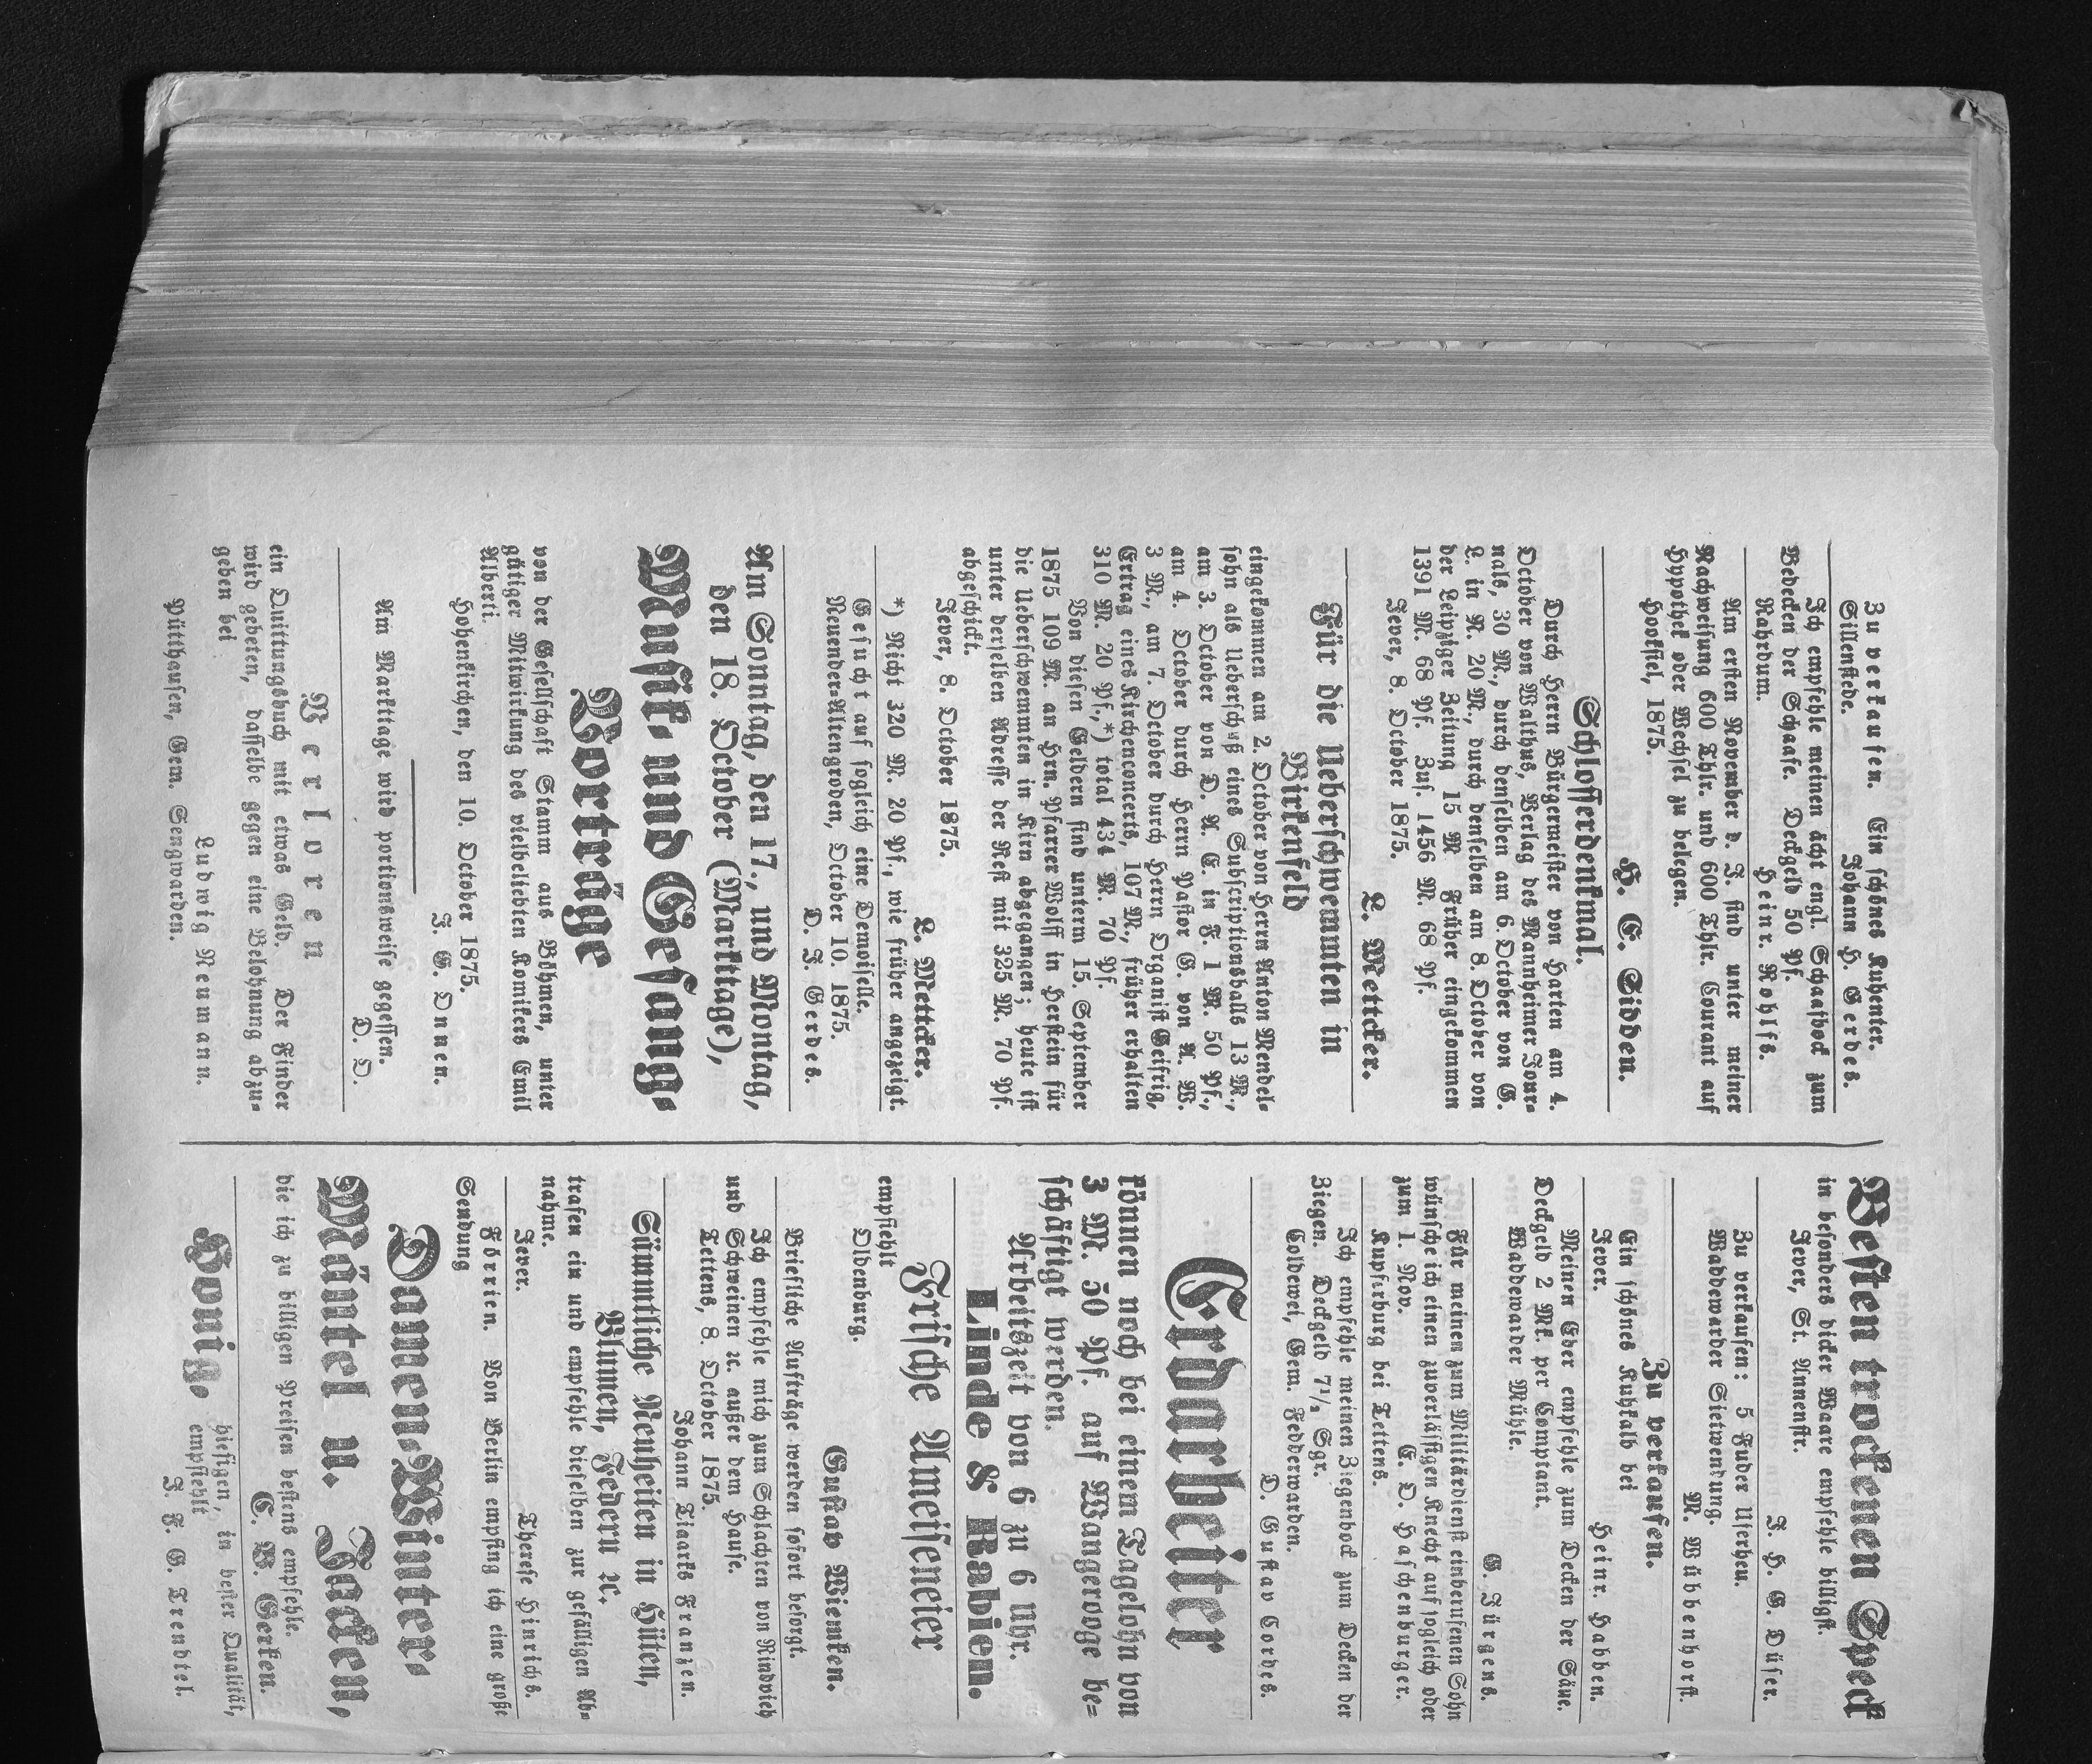 Zu verkaufen. Ein schönes Kuhenter.
Sillenstede. Johann H. Gerdes.
Ich empfehle meinen ächt engl. Schaafbock zum
Bedecken der Schaafe. Deckgeld 50 Pf.
Rahrdum. Heinr. Rohlfs.
Am ersten November d. J. sind unter meiner
Nachweisung 600 Thlr. und 600 Thlr. Courant auf
Hypothek oder Wechsel zu belegen.
Hooksiel, 1875.
H. C. Sidden.
Schlosserdenkmal.
Durch Herrn Bürgermeister von Harten am 4.
October von Walthus, Verlag des Mannheimer Jour-
nals, 30 M., durch denselben am 6. October von G.
L. in R. 20 M., durch denselben am 8. October von
der Leipziger Zeitung 15 M Früher eingekommen
1391 M. 68 Pf. Zus. 1456 M. 68 Pf.
Jever, 8. October 1875.
L. Mettcker.
Für die Ueberschwemmten in
Birkenfeld
eingekommen am 2. October von Herrn Anton Mendel-
sohn als Ueberschuß eines Subscriptionsballs 13 M.,
am 3. October von D. A. C. in F. 1 M. 50 Pf.,
am 4. October durch Herrn Pastor G. von A. W.
3 M., am 7. October durch Herrn Organist Geifrig,
Ertrag eines Kirchenconcerts, 107 M., früher erhalten
310 M. 20 Pf,*) total 434 M. 70 Pf.
Von diesen Geldern sind unterm 15. September
1875 109 M. an Hrn. Pfarrer Wolff in Herstein für
die Ueberschwemmten in Kirn abgegangen; heute ist
unter derselben Adresse der Rest mit 325 M. 70 Pf.
abgeschickt.
Jever, 8. October 1875.
L. Mettcker.
*) Nicht 320 M. 20 Pf., wie früher angezeigt.
Gesucht auf sogleich eine Demoiselle.
Neuender-Altengroden, October 10. 1875.
D. J. Gerdes.
Am Sonntag, den 17., und Montag,
den 18. October (Markttage),
Musik- und Gesang-
Vorträge
von der Gesellschaft Stamm aus Böhmen, unter
gütiger Mitwirkung des vielbeliebten Komikers Emil
Alberti.
Hohenkirchen, den 10. October 1875.
J. G. Onnen.
Am Markttage wird portionsweise gegessen.
D. O.
Verloren
ein Quittungsbuch mit etwas Geld. Der Finder
wird gebeten, dasselbe gegen eine Belohnung abzu-
geben bei
Ludwig Neumann.
Pütthausen, Gem. Sengwarden.
Besten trockenen Speck
in besonders dicker Ware empfehle billigst.
Jever, St. Annenstr. J. H. G. Düser.
Zu verkaufen: 5 Fuder Uferheu.
Waddewarder Sietwendung.
M. Wübbenhorst.
Zu verkaufen.
Ein schönes Kuhkalb bei
Jever. Heinr. Habben.
Meinen Eber empfehle zum Decken der Säue.
Deckgeld 2 Mk. per Comptant.
Waddewarder Mühle.
G. Jürgens.
Für meinen zum Militärdienst einberufenen Sohn
wünsche ich einen zuverlässigen Knecht auf sogleich oder
zum 1. Nov. G. D. Haschenburger.
Kupferburg bei Tettens.
Ich empfehle meinen Ziegenbock zum Decken der
Ziegen. Deckgeld 7½ Sgr.
Coldewei, Gem. Fedderwarden.
D. Gustav Cordes.
Erdarbeiter
können noch bei einem Tagelohn von
3 M. 50 Pf. auf Wangerooge be-
schäftigt werden.
Arbeitszeit von 6 zu 6 Uhr.
Linde & Rabien.
Frische Ameiseneier
empfiehlt
Oldenburg.
Gustav Wiemken.
Briefliche Aufträge werden sofort besorgt.
Ich empfehle mich zum Schlachten von Rindvieh
und Schweinen ꝛc. außer dem Hause.
Tettens, 8. October 1875.
Johann Tiarks Franzen.
Sämmtliche Neuheiten in Hüten,
Blumen, Federn ꝛc.
trafen ein und empfehle dieselben zur gefälligen Ab-
nahme.
Jever. Therese Hinrichs.
Förrien. Von Berlin empfing ich eine große
Sendung
Damen-Winter-
Mäntel u. Jacken,
die ich zu billigen Preisen bestens empfehle.
C. B. Gerken.
Honig, hiesigen, in bester Qualität,
empfiehlt
J. F. G. Trendtel.